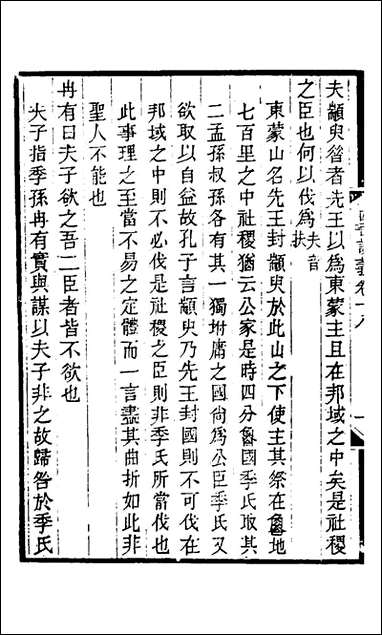 夫顓臾昔者先王以爲東蒙主且在邦域之中矣是社稷
之臣也何以伐爲夫音扶
東蒙山名先王封顓臾於此山之下使主其祭在魯地
七百里之中社稷猶云公家是時四分魯國季氏取其
二孟孫叔孫各有其一獨附庸之國尚爲公臣季氏又
欲取以自益故孔子言顓臾乃先王封國則不可伐在
邦域之中則不必伐是社稷之臣則非季氏所當伐也
此事理之至當不易之定體而一言盡其曲折如此非
聖人不能也
冉有曰夫子欲之吾二臣者皆不欲也
夫子指季孫冉有實與謀以夫子非之故歸咎於季氏